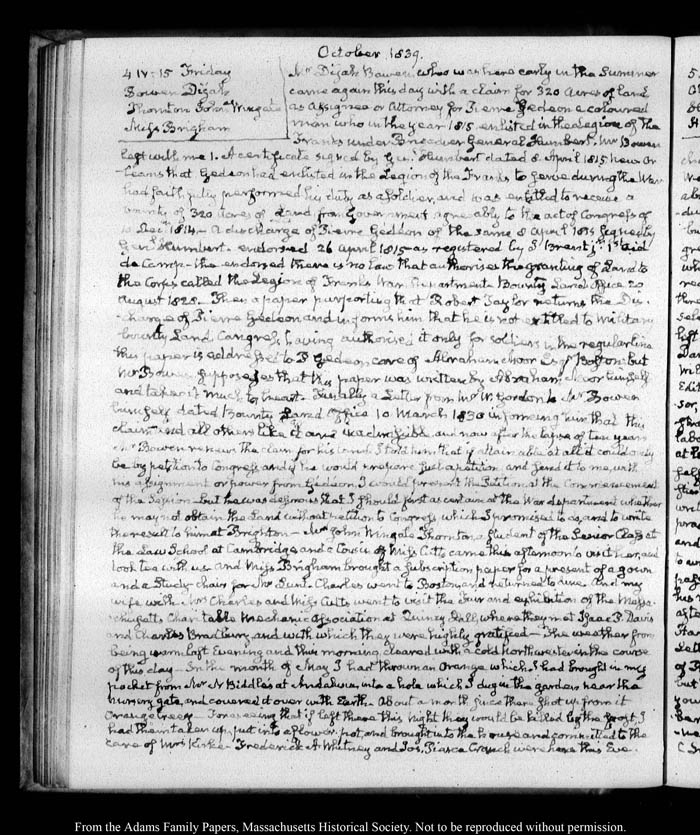 October 1839.
4 IV:15 Friday
Bowen Dijah
Thornton John Wingate
Miss Brigham
Mr Dijah Bowen who was here early in the Summer
came again this day with a claim for 320 Acres of land
as Assignee or Attorney for Pierre Gedeon a coloured
man who in the year 1815 enlisted in the Legion of the
Franks under Brigadier General Humbert. Mr Bowen
left with me 1. A certificate signed by Gen. Humbert dated 8 April 1815 he
that Gedeon had enlisted in the Legion of the Franks to serve during the War
had faithfully performed his duty as a Soldier, and was entitled to receive a
bounty of 320 Acres of Land from Government agreeably to the act of Congress of
10 Dec 1814 — A discharge of Pierre Gedeon of the same 8 April 1815 signed by
Genl Humbert. endorsed 26 April 1815 as registered by Aid
de Camp — the endorsed there is no law that authorises the granting of Land to
the Corps called the Legion of Franks War Department Bounty Land Office 20
August 1828. Then a paper purporting that Robert Taylor returns the Dis-
charge of Pierre Gedeon and informs him that he is not entitled to Military
bounty Land Congress, having authorised it only for soldiers in the regular line
this paper is addressed to P Gedeon, care of Abraham Moor Esqr Boston but
Mr Bowen supposes that this paper was written by Abraham Moor himself
and takes it much to heart. Finally a Letter from W. Gordon to Mr Bowen
himself dated Bounty Land Office 10 March 1830 informing him that this
claim and all others like it are inadmissible and now after the lapse of ten years
Mr Bowen renews the claim for his Land. I told him that if attainable at all it could only
be by petition to Congress and if he would prepare such a petition and send it to me, with
his assignment or power from Gedeon, I would present the Petition at the Commencement
of the Session — but he was desirous that I should first ascertain at the War department whether
he may not obtain the Land without petition to Congress which I promised to do, and to write
the result to him at Brighton — Mr John Wingate Thornton a Student of the Senior Class at
the Law School at Cambridge and a Cousin of Miss Cutts came this afternoon to visit her, and
took tea with us. And Miss Brigham brought a subscription paper for a present of a gown
and a Study chair for Mr Lunt. Charles went to Boston and returned to dine. And my
wife with Mrs Charles and Miss Cutts went to visit the Fair and exhibition of the Massa-
chusetts Charitable Mechanic Association at Quincy Hall, where they met Isaac P. Davis
and Charles Bradbury, and with which they were highly gratified — The weather from
being warm last Evening and this morning, cleared with a cold Northwester in the course
of this day — In the month of May I had thrown an Orange which I had brought in my
pocket from Mr N Biddle's at Andalusia, into a hole which I dug in the garden near the
nursery gate, and covered it over with Earth. About a month since there shot up from it
Orange trees — Foreseeing that if left there this night they would be killed by the frost, I
had them taken up, put into a flower-pot, and brought into the house and committed to the
care of Mrs Kirke Frederick A Whitney and Jos. Pearce Cranch were here this Eve.
From the Adams Family Papers, Massachusetts Historical Society. Not to be reproduced without permission.